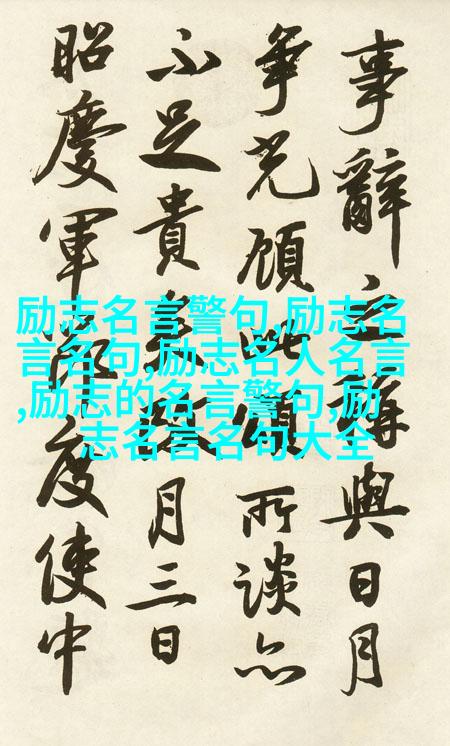 事辭之與日月
爭光顧此頌所談亦
不足貴月三日
昭慶軍度使中
励志名言警句,励志名
言名句,励志名人名言
,励志的名言警句,励
志名言名句大全